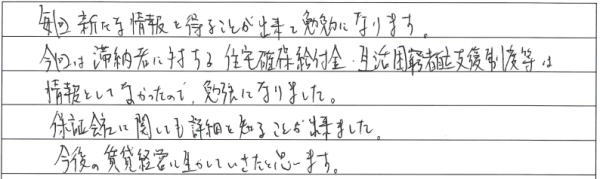 毎回新たな情報を得ることが出来て勉強になります。
今回は滞納者に対する住宅確保給付金・生活困窮者自立支援制度等は
情報としてなかったので、勉強になりました。
保証会社に関しても詳細を知ることが出来ました。
今後の賃貸経営に生かしていきたいと思います。